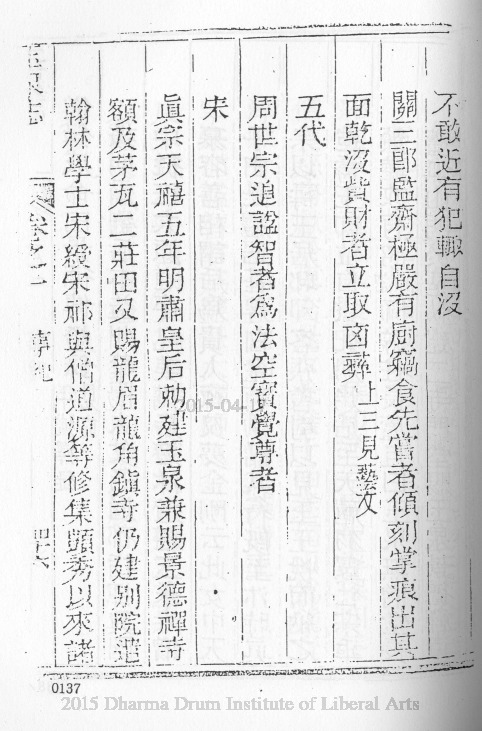 不敢近有犯輙自没
關三郎監齋極嚴有廚竊食先嘗者傾刻掌痕出其
面乾没貲財者立取囟彞上三見藝文
五代
周世宗追諡智者爲法空寳覺尊者
宋
眞宗天禧五年明肅皇后勑建玉泉兼賜景德禪寺
額及茅瓦二莊田又賜龍眉龍角鎮寺仍建别院遣
翰林學士宋綬宋祁與僧道源等修集顗秀以來諸
玉泉志 卷之一 事紀
2015-04-1
0137
2015 Dharma Drum Institute of Liberal Arts